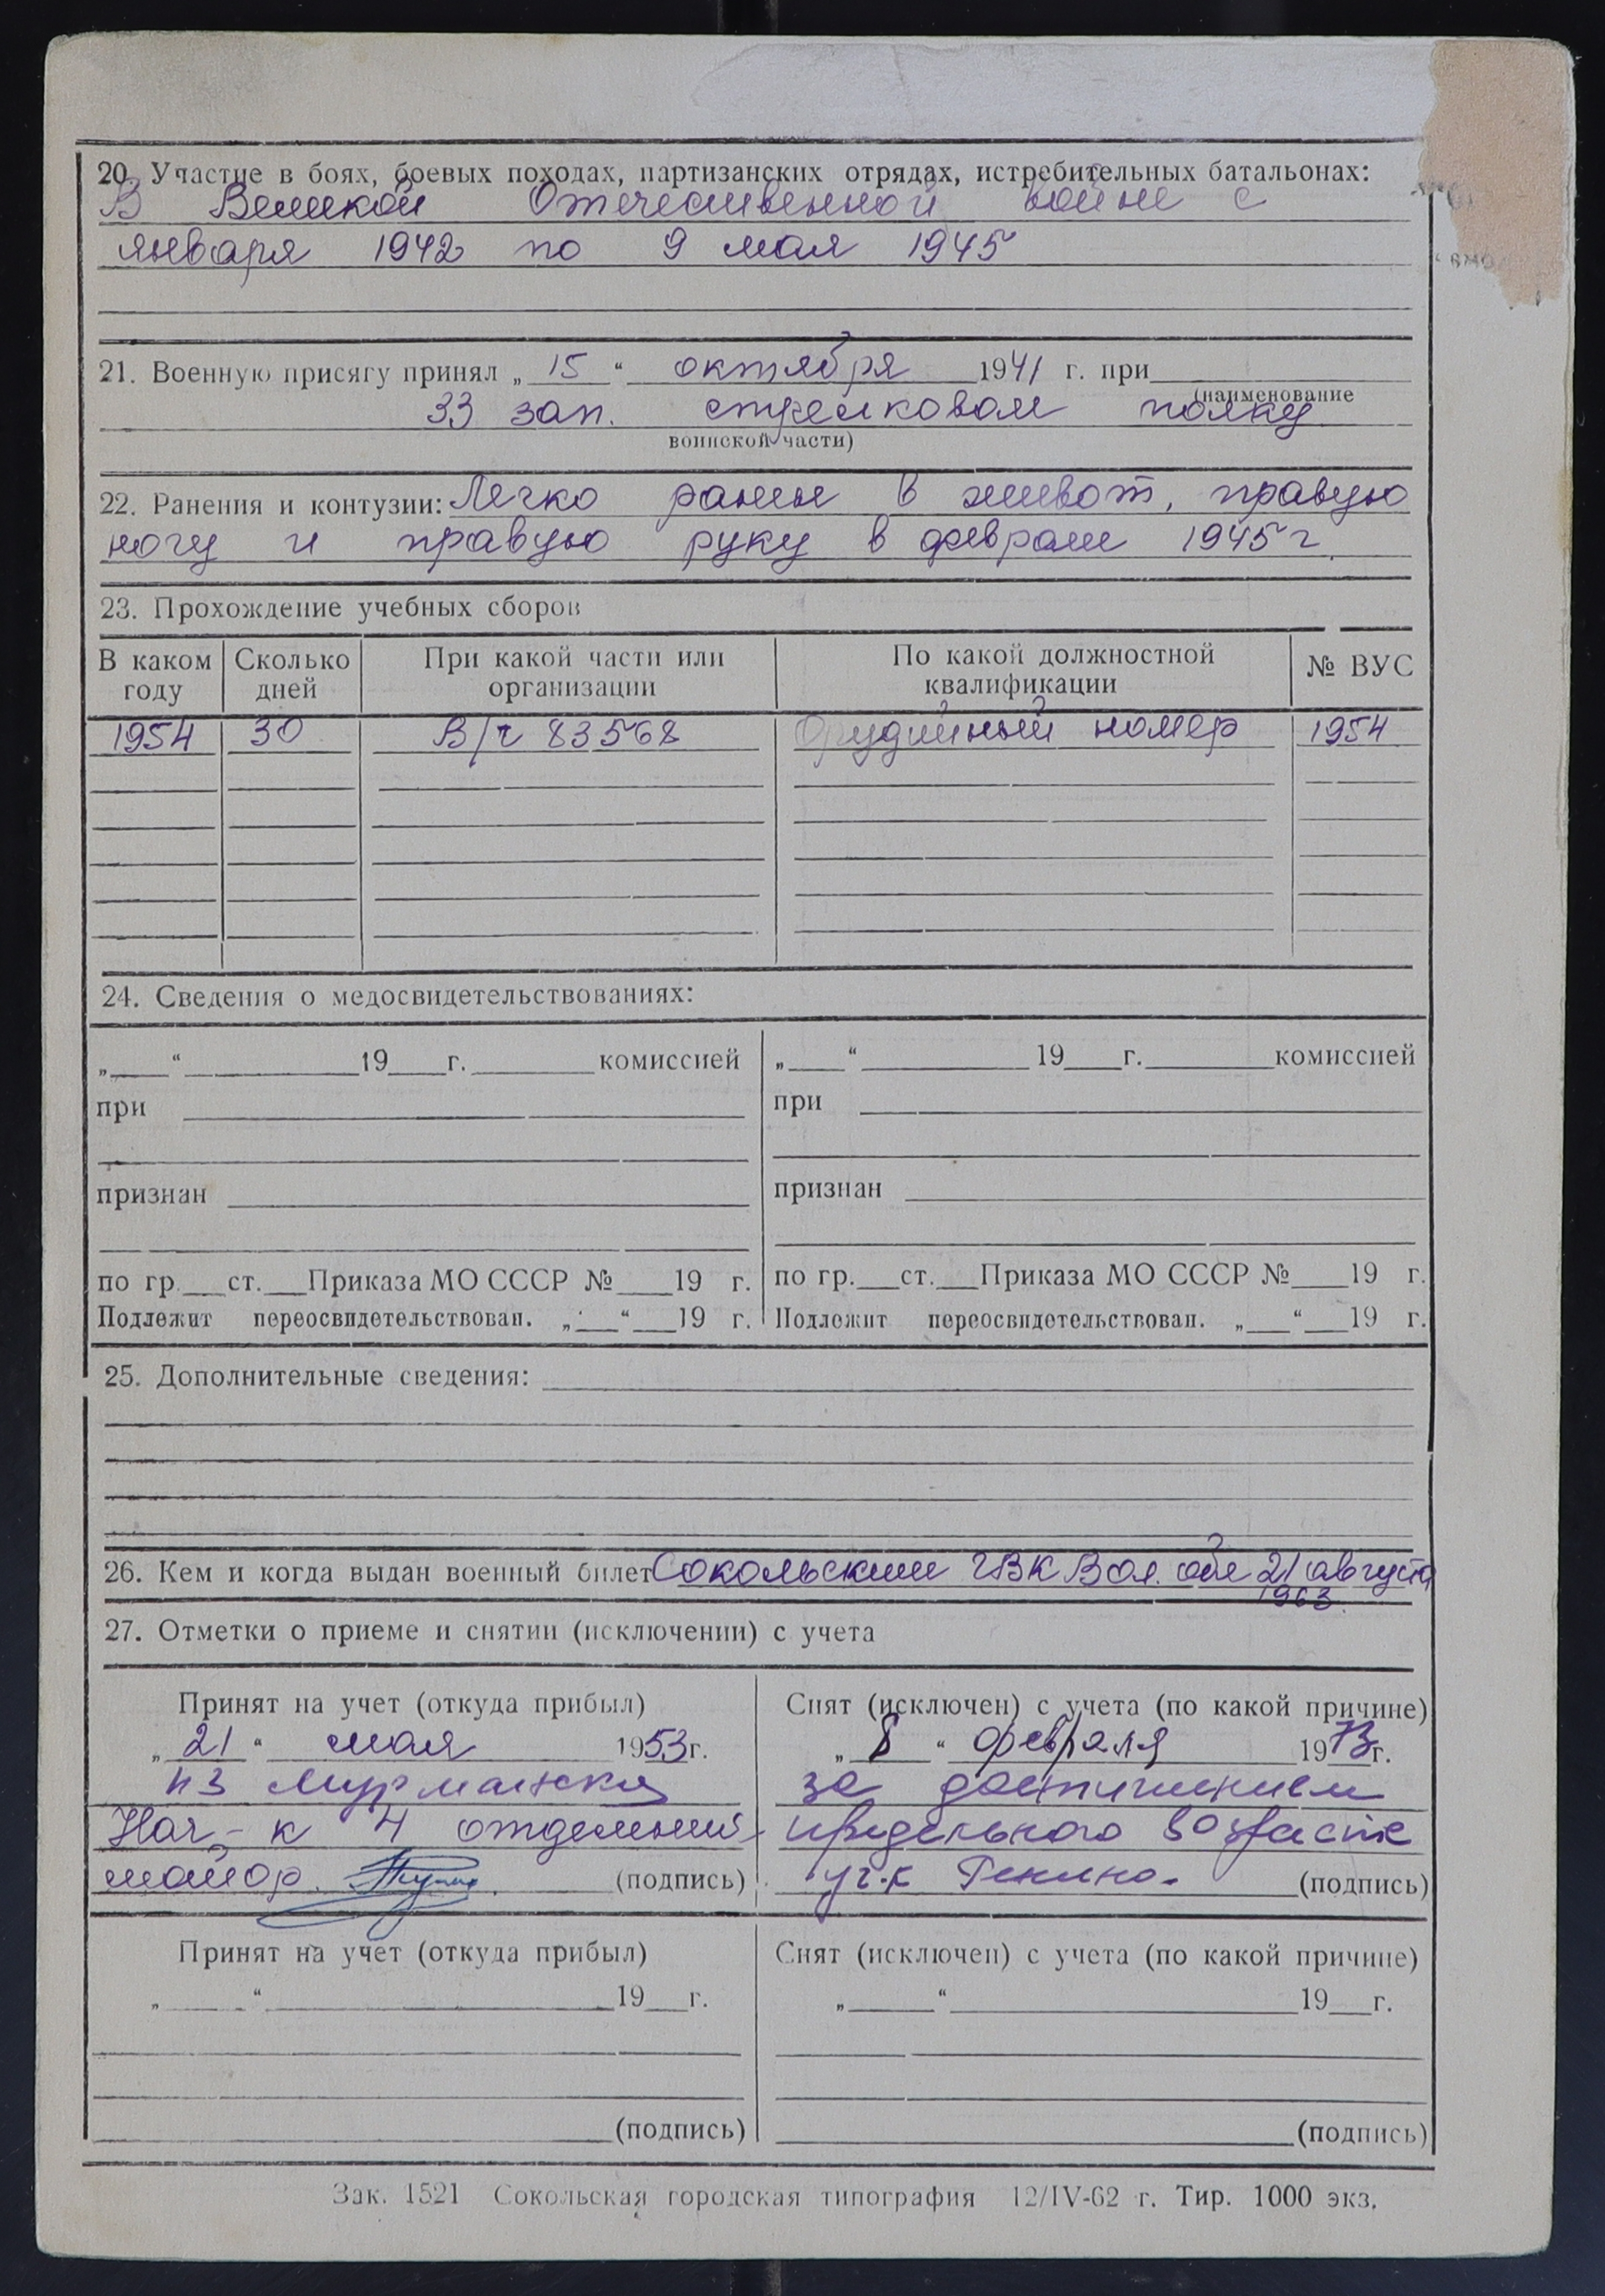 20. Участие в боях, боевых походах, партизанских отрядах, истребительных батальонах:
В Великой Отечественной войне с
января 1942 по 9 мая 1945
21. Военную присягу принял „ 15 “ октября 1941 г. при
(наименование
33 зап. стрелковом полку
воинской части)
22. Ранения и контузии: Легко ранен в живот, правую
ногу и правую руку в феврале 1945 г.
23. Прохождение учебных сборов
В каком году Сколько дней При какой части или организации По какой должностной квалификации № ВУС
1954 30 В/ч 83568 Орудийный номер 1954
24. Сведения о медосвидетельствованиях:
„ “ 19 г. комиссией
при
признан
по гр. ст. Приказа МО СССР № 19 г.
Подлежит переосвидетельствован. „ “ 19 г.
„ “ 19 г. комиссией
при
признан
по гр. ст. Приказа МО СССР № 19 г.
Подлежит переосвидетельствован. „ “ 19 г.
25. Дополнительные сведения:
26. Кем и когда выдан военный билет Сокольским ГВК Вол. обл 21 августа
1963.
27. Отметки о приеме и снятии (исключении) с учета
Принят на учет (откуда прибыл)
„ 21 “ мая 1953 г.
из Мурманска
Нач-к 4 отделения
майор. (подпись)
Снят (исключен) с учета (по какой причине)
„ 8 “ февраля 1973 г.
за достижением
предельного возраста
(подпись)
Принят на учет (откуда прибыл)
„ “ 19 г.
(подпись)
Снят (исключен) с учета (по какой причине)
„ “ 19 г.
(подпись)
Зак. 1521 Сокольская городская типография 12/IV-62 г. Тир. 1000 экз.